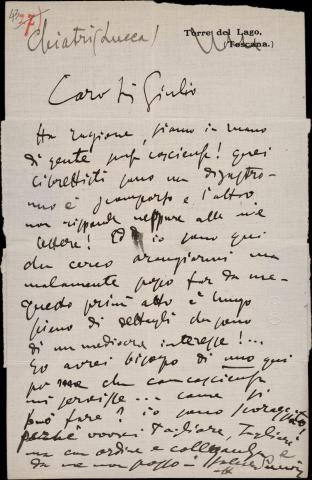 Torre del Lago,
(Toscana.)
Chiatri (Lucca)
Caro Sig Giulio
Ha ragione, siamo in mano
di gente senza coscienza! quei
librettisti sono un disastro -
uno è scomparso e l'altro
non risponde neppure alle mie
lettere! Ed io sono qui
che cerco arrangiarmi ma
malamente posso far da me -
questo primo atto è lungo
pieno di dettagli che sono
di un mediocre interesse!...
Io avrei bisogno di uno qui
per che con coscienza
mi servisse... come si
può fare? io sono scoraggiato!
perchè vorrei tagliare, tagliare
ma con ordine e collegando e
da me non posso -